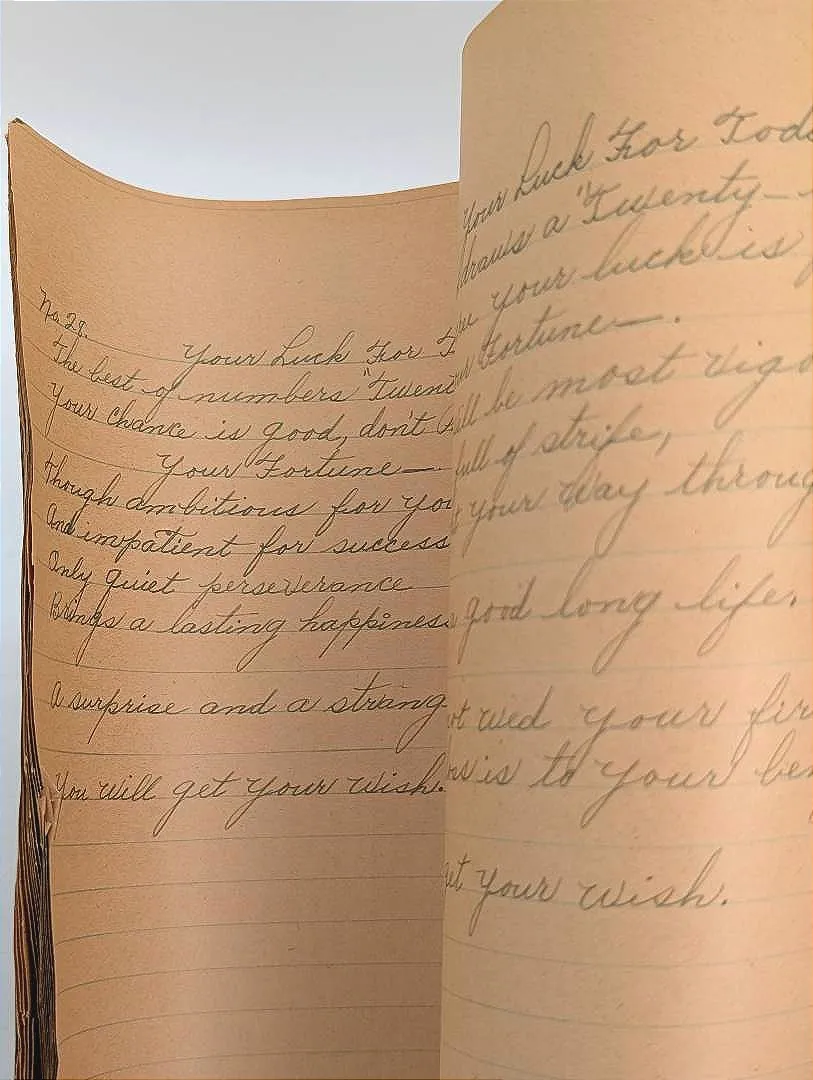 No. 28.
Your Luck For
The best of numbers "Twent
Your chance is good, don't
Your Fortune—.
Though ambitious for you
And impatient for success
Only quiet perseverance
Brings a lasting happiness.
A surprise and a strang
You will get your wish.
Your Luck For Toda
draws a "Twenty—
your luck is
Fortune—.
be most vigo
full of strife,
your way throug
good long life.
wed your fir
is to your ben
get your wish.